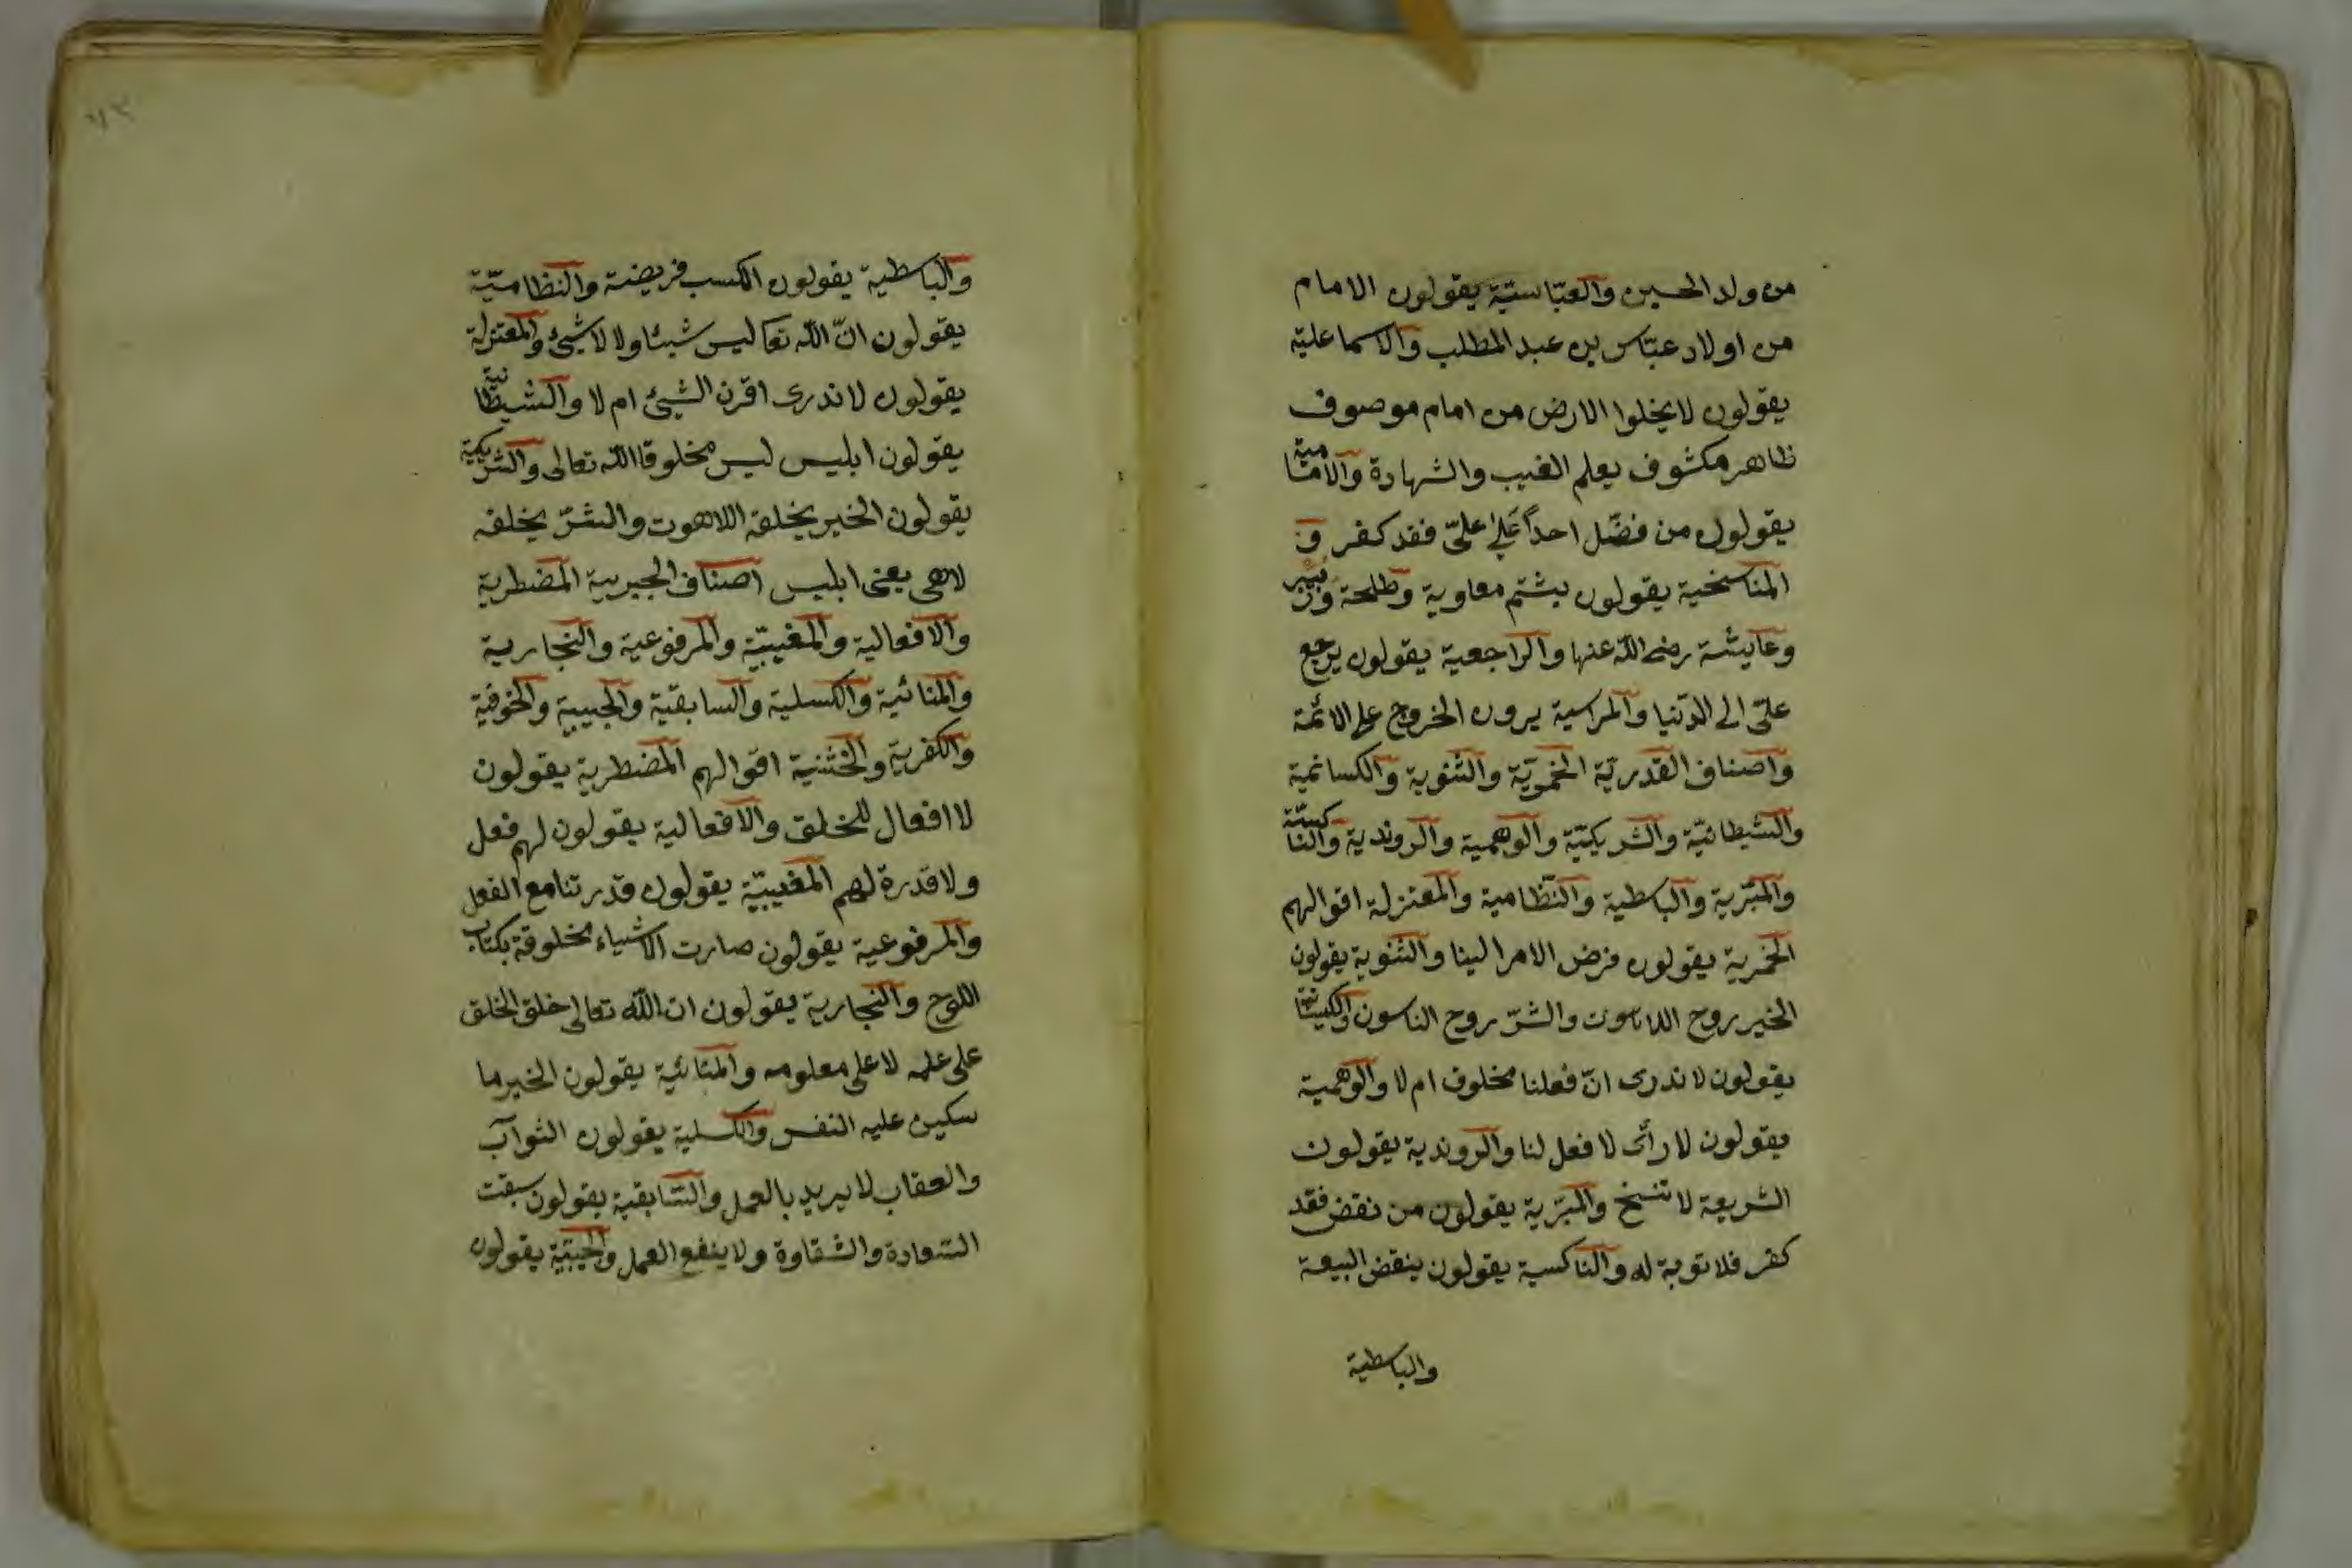 من ولد الحسين والعبّاسيّة يقولون الامام
من اولاد عبّاس بن عبد المطلب والاسماعلية
يقولون لا يخلوا الارض من امام موصوف
ظاهر مكشوف يعلم الغيب والشهادة والامامية
يقولون من فضّل احداً على علىّ فقد كفر و
المناسخية يقولون يشتم معاوية وطلحة وزبير
وعايشة رضى الله عنها والراجعية يقولون يرجع
علىّ الى الدّنيا والمراسية يرون الخروج على الائمة
واصناف القدريّة الخمريّة والثنوية والكسانمية
والشيطانيّة والشريكيّة والوهمية والروندية والناكسيّة
والمبّرية والباسطية والنّظامية والمعتزلة اقوالهم
الخمرية يقولون فرض الامر الينا والثنوية يقولون
الخير روح اللاهوت والشرّ روح الناسون
يقولون لا ندرى انّ فعلنا مخلوق ام لا والوهمية
يقولون لا رأى لا فعل لنا والروندية يقولون
الشريعة لا تنسخ والمبّرية يقولون من نقض فقد
كفر فلا توبة له والناكسية يقولون ينقض البيعة
والباسطية
والباسطية يقولون الكسب فريضة والنظاميّة
يقولون انّ الله تعا ليس شيئا ولا لا شيئ والمعتزلة
يقولون لا ندرى اقرن الشيئ ام لا والشيطانية
يقولون ابليس ليس مخلوقا الله تعالى والشريكية
يقولون الخير يخلقه اللاهوت والشرّ يخلقه
لاهى يعنى ابليس اصناف الجبرية المضطرية
والافعالية والمغيبيّة والمرفوعية والنجارية
والمنائية والكسلية والسابقيّة والحبيبية والخوفية
والكفرية والخثنية اقوالهم المضطرية يقولون
لا افعال للخلق والافعالية يقولون لهم فعل
ولا قدرة لهم المغيبيّة يقولون قدرتنا مع الفعل
والمرفوعية يقولون صارت الاشياء مخلوقة بكتاب
اللوح والنجارية يقولون ان الله تعالى خلق الخلق
على علمه لا على معلومه والمنائية يقولون الخير ما
سكين عليه النفس والكسلية يقولون الثواب
والعقاب لا يريد بالعمل والسّابقية يقولون سبقت
السّعادة والشقاوة ولا ينفع العمل والحبيّة يقولون